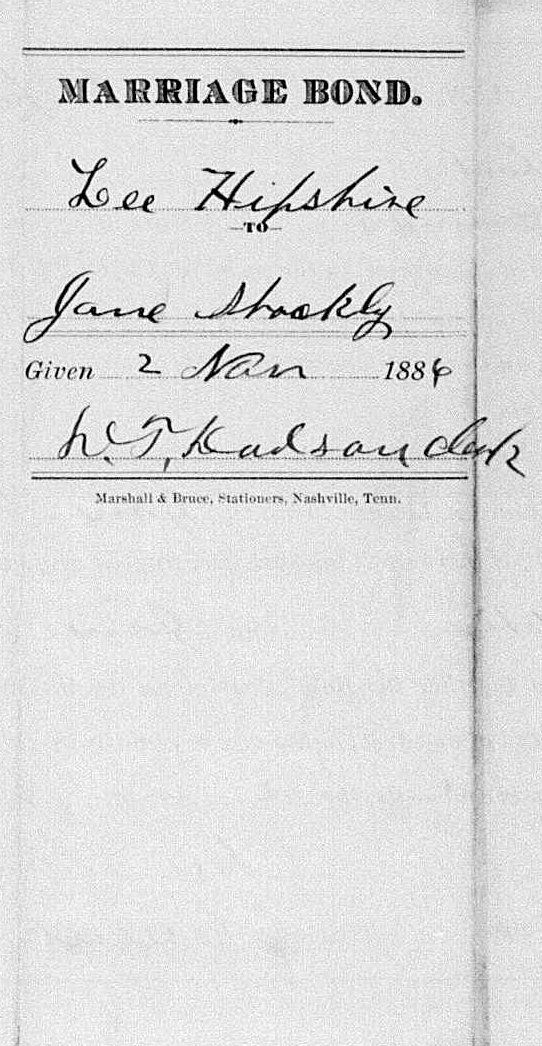 MARRIAGE BOND.
Lee Hipshire
TO
Jane Stockly
Given 2 Nov 1886
W. T. Dodson Clerk
Marshall & Bruce, Stationers, Nashville, Tenn.